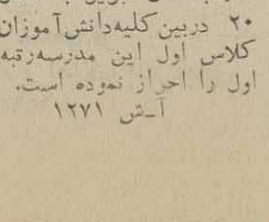 ۲۰ دربین کلیه دانش آموزان
کلاس اول این مدرسه رتبه
اول را احراز نموده است.
آ-ش ۱۲۷۱